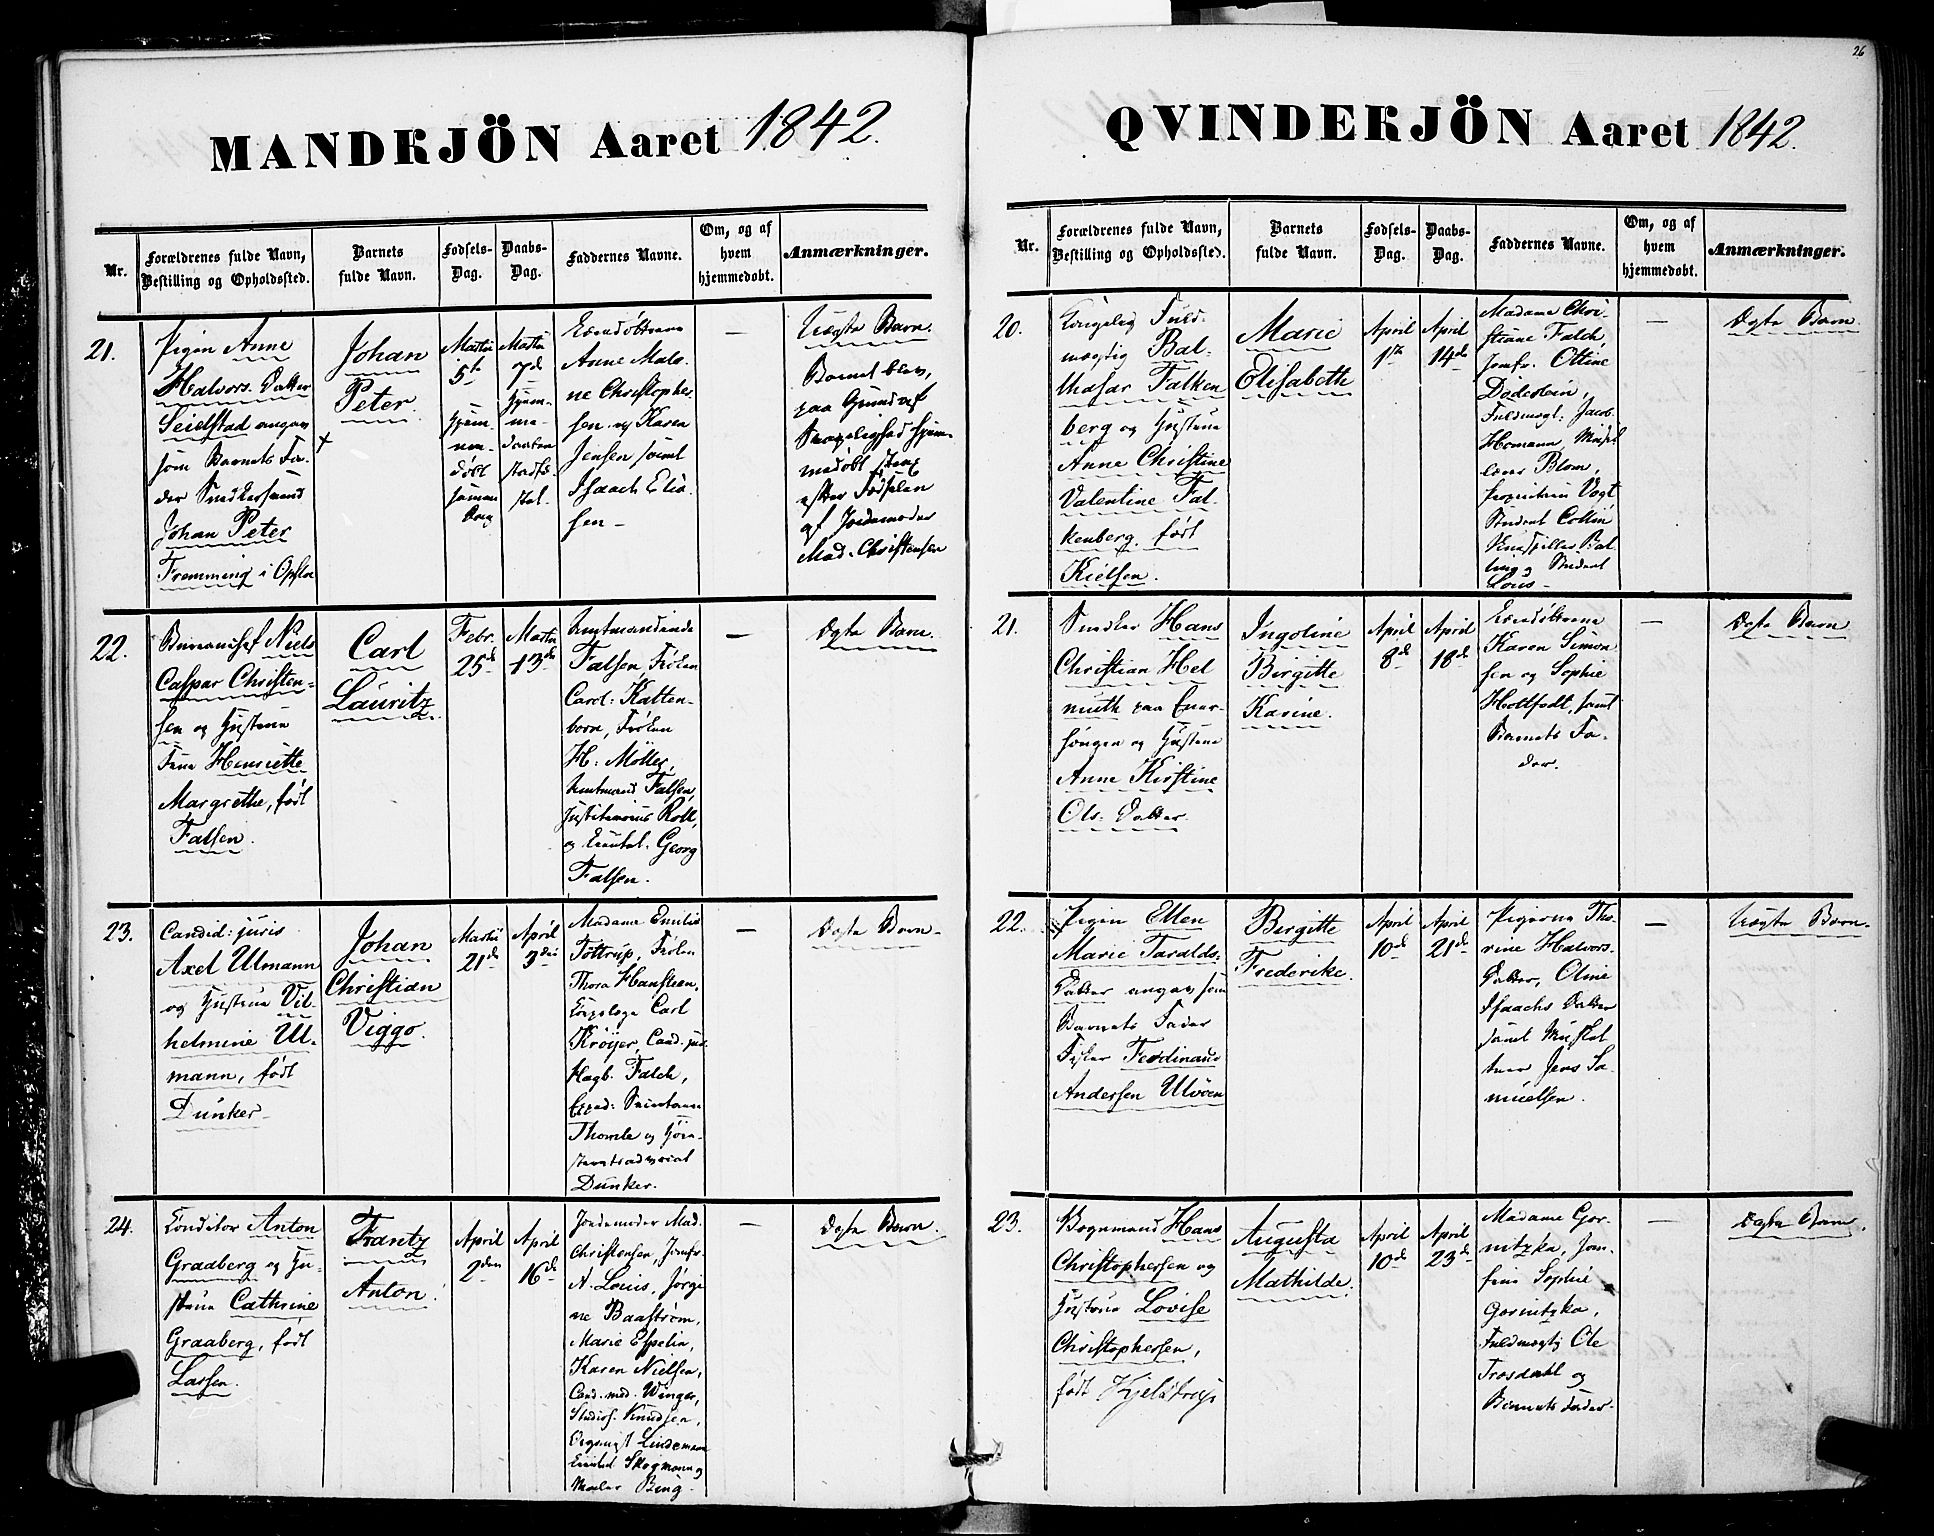 26
MANDKJÖN Aaret 1842.
Nr.
Forældrenes fulde Navn,
Bestilling og Opholdssted.
Barnets
fulde Navn.
Fødsels-
Dag.
Daabs-
Dag.
Faddernes Navne.
Om, og af
hvem
hjemmedøbt.
Anmærkninger.
21.
Pigen Anne
Halvors Datter
Seielstad angav
som Barnets Fa-
der Snedkersvend
Johan Peter
Fremming i Opslo
Johan
Peter.
Martii
5te
Hjem-
me-
døbt
samme
Dag
Martii
7de
Hjem-
me-
daaben
stadfæ-
stet.
Anne Mal-
ne Christopher-
sen og Karen
Jensen samt
Isaach Elia-
sen –
–
Uægte Barn.
Barnet blev,
paa Grund af
Svagelighed hjem-
medøbt strax
efter Fødselen
af Jordemoder
Mad. Christensen
22.
Niels
Caspar Christen-
sen og Hustrue
Frue Henriette
Margrethe, født
Falsen.
Carl
Lauritz.
Febr.
25de
Martii
13de
Amtmandinde
Falsen, Frøken
Carol: Katten-
born, Frøken
H: Møller,
Amtmand Falsen,
Justitiarius Roll,
og Georg
Falsen.
–
Ægte Barn.
23.
Candid: juris
Axel Ulmann
og Hustrue Vil-
helmine Ul-
mann, født
Dunker –
Johan
Christian
Viggo.
Martii
21de
April
3die
Madame Emilie
Tottrup, Frøken
Thora Hansteen,
Carl
Krøyer, Cand. jur.
Hagb. Falch,
Thomle og
Dunker.
–
Ægte Barn.
24.
Conditor Anton
Graaberg og Hu-
strue Cathrine
Graaberg, født
Larsen.
Frantz
Anton.
April
2den
April
16de
Jordemoder Mad.
Christensen, Jomfr.
N. Louis, Jørgi-
ne Baastrøm,
Marie Espelin,
Karen Nielsen,
Cand. med. Winger,
Studios. Knudsen,
Lindemann
Skogmann og
Maler Bing.
–
Ægte Barn.
QVINDEKJÖN Aaret 1842.
Nr.
Forældrenes fulde Navn,
Bestilling og Opholdssted.
Barnets
fulde Navn.
Fødsels-
Dag.
Daabs-
Dag.
Faddernes Navne.
Om, og af
hvem
hjemmedøbt.
Anmærkninger.
20.
Kongelig Fuld-
mægtig Bal-
thasar Falken
berg og Hustrue
Anne Christine
Valentine Fal-
kenberg, født
Kielsen.
Marie
Elisabeth
April
1ste
April
14de
Madame Chri-
stiane Falch,
Jomfr. Ottine
Døderlein,
Fuldmægt: Jacob
Homann,
Blom,
Vogt
Student Collin
Student
Lous –
–
Ægte Barn
21.
Snedker Hans
Christian Hel
muth paa Ener-
haugen og Hustrue
Anne Kirstine
Ols: Datter.
Ingoline
Birgitte
Karine.
April
8de
April
18de
Karen Simon
sen og Sophie
Holtfodt, samt
Barnets Fa-
der.
–
Ægte Barn
22.
Pigen Ellen
Marie Taralds-
Datter angav som
Barnets Fader
Fisker Ferdinand
Andersen Ulvøen
Birgitte
Frederikke.
April
10de
April
21de
Pigerne Tho-
rine Halvors-
Datter, Oline
Isaachs Datter
samt Musket
teer Jens Sa-
muelsen.
–
Uægte Barn.
23.
Bogmand Hans
Christophersen og
Hustrue Lovise
Christophersen,
født
Augusta
Mathilde.
April
10de
April
23de
Madame Gor-
nitzka, Jom-
frue Sophie
Gornitzka,
Fuldmægtig Ole
Trosdahl og
Barnets Fader.
–
Ægte Barn.